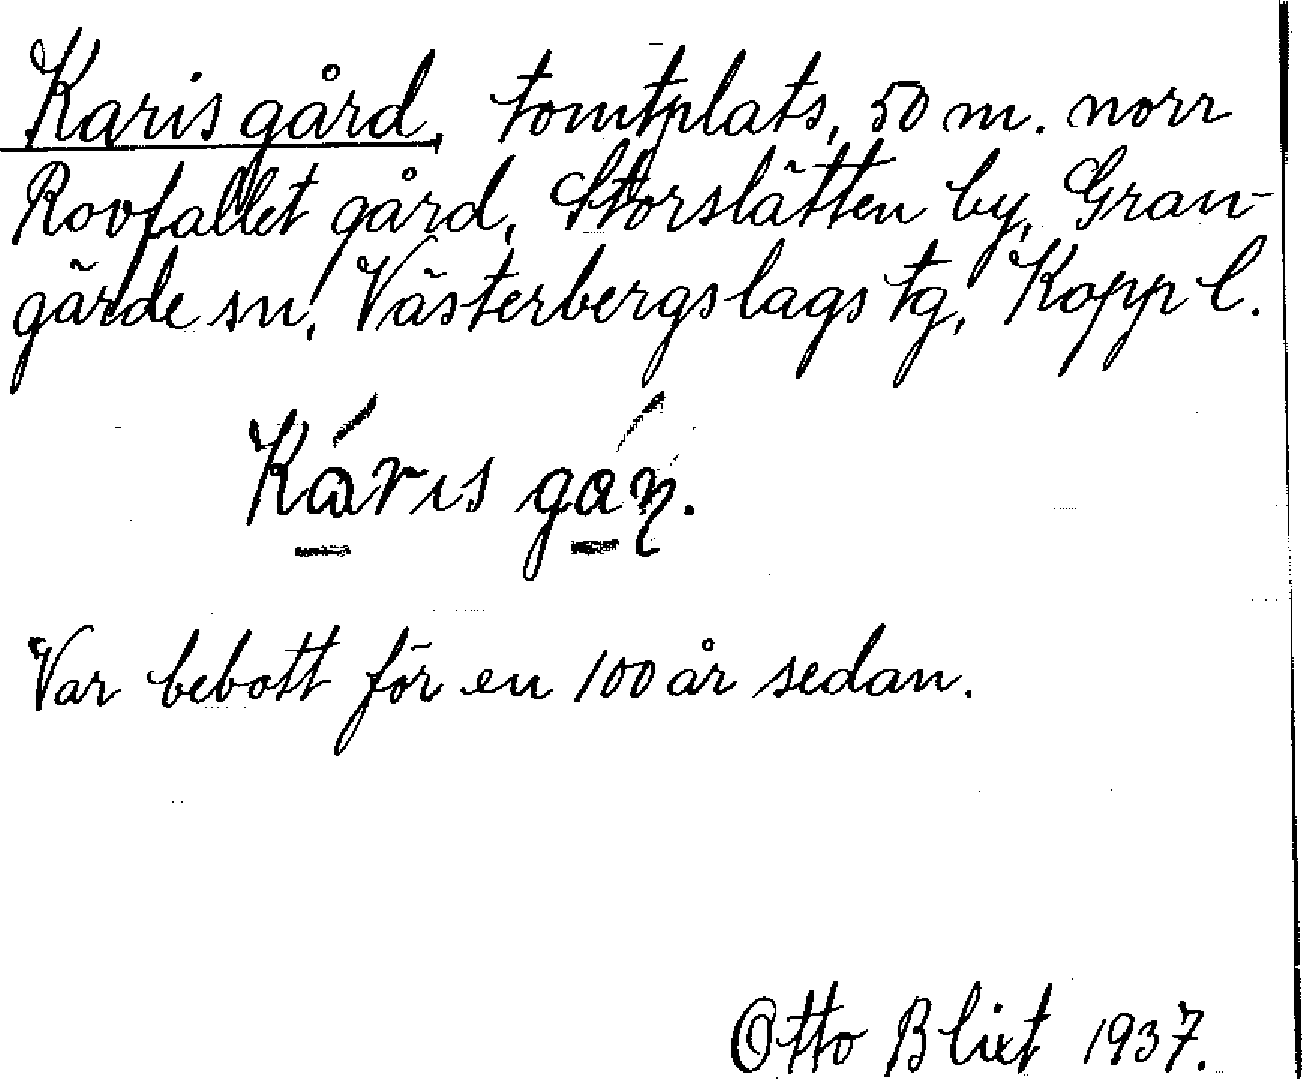 Karis gård, tomtplats, 50 m. norr
Rovfallet gård, Storslätten by, Gran-
gärde sn, Västerbergslags tg, Kopp l.
Káris gáṛ.
Var bebott för en 100 år sedan.
Otto Blixt 1937.